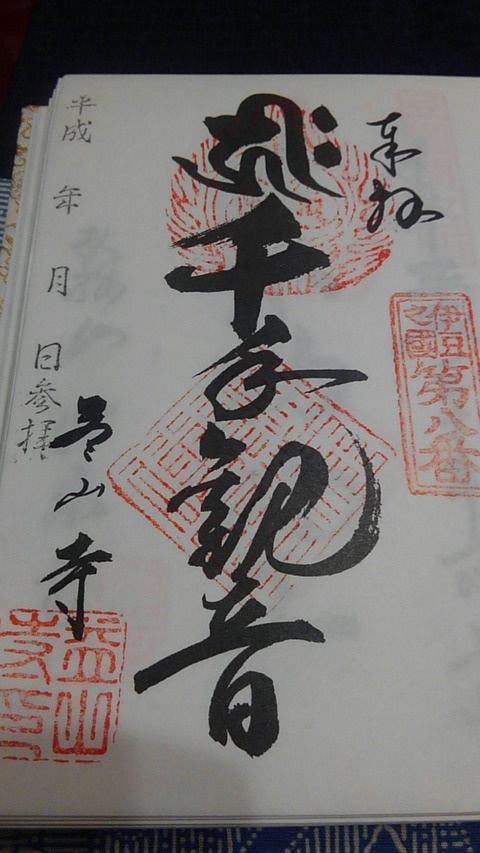 奉拝
伊豆
之國
第八番
千手観音
平成　年　月　日参拝
益山寺
益山
寺印